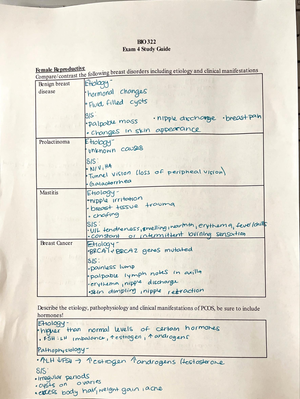 BIO 322
Exam 4 Study Guide
Female Reproductive:
Compare/contrast the following breast disorders including etiology and clinical manifestations
Benign breast disease
Etiology-
•hormonal changes
•Fluid filled cysts
S/S:
•palpable mass •nipple discharge •breast pain
•changes in skin appearance
Prolactinoma
Etiology-
•unknown causes
S/S:
•N/V, HA
•Tunnel vision (loss of peripheral vision)
•Galactorrhea
Mastitis
Etiology-
•nipple irritation
•breast tissue trauma
•chafing
S/S:
•U/L tenderness, swelling, warmth, erythema, fever/chills
•constant or intermittent burning sensation
Breast Cancer
Etiology-
•BRCA1 + BRCA2 genes mutated
S/S:
•painless lump
•palpable lymph nodes in axilla
•erythema, nipple discharge
•skin dimpling, nipple retraction
Describe the etiology, pathophysiology and clinical manifestations of PCOS, be sure to include hormones!
Etiology-
•higher than normal levels of certain hormones
•FSH:LH imbalance, ↑estrogen, ↑androgens
Pathophysiology-
•↑LH ↓FSH → ↑estrogen ↑androgens (testosterone
S/S
•irregular periods
•cysts on ovaries
•excess body hair, weight gain, acne